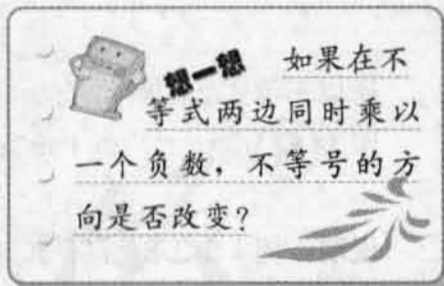 想一想 如果在不
等式两边同时乘以
一个负数，不等号的方
向是否改变？